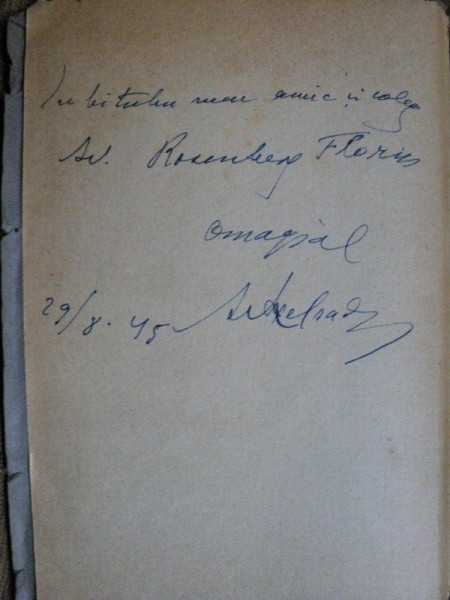 Iubitului meu amic și coleg
Av. Rosenberg Florin
Omagial
29/8. 45